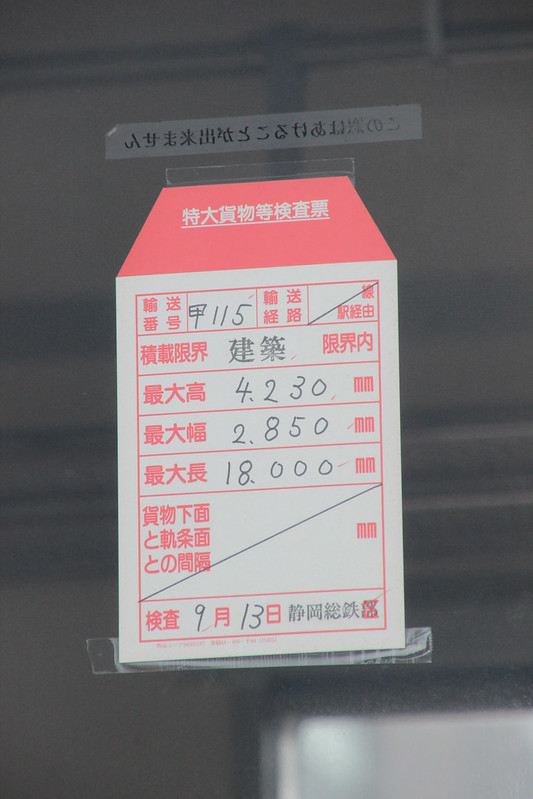 この窓はあけることが出来ません
特大貨物等検査票
輸送番号 甲115 輸送経路 線駅経由
積載限界 建築 限界内
最大高 4.230 mm
最大幅 2.850 mm
最大長 18.000 mm
貨物下面
と軌条面 mm
との間隔
検査 9月13日 静岡総鉄部